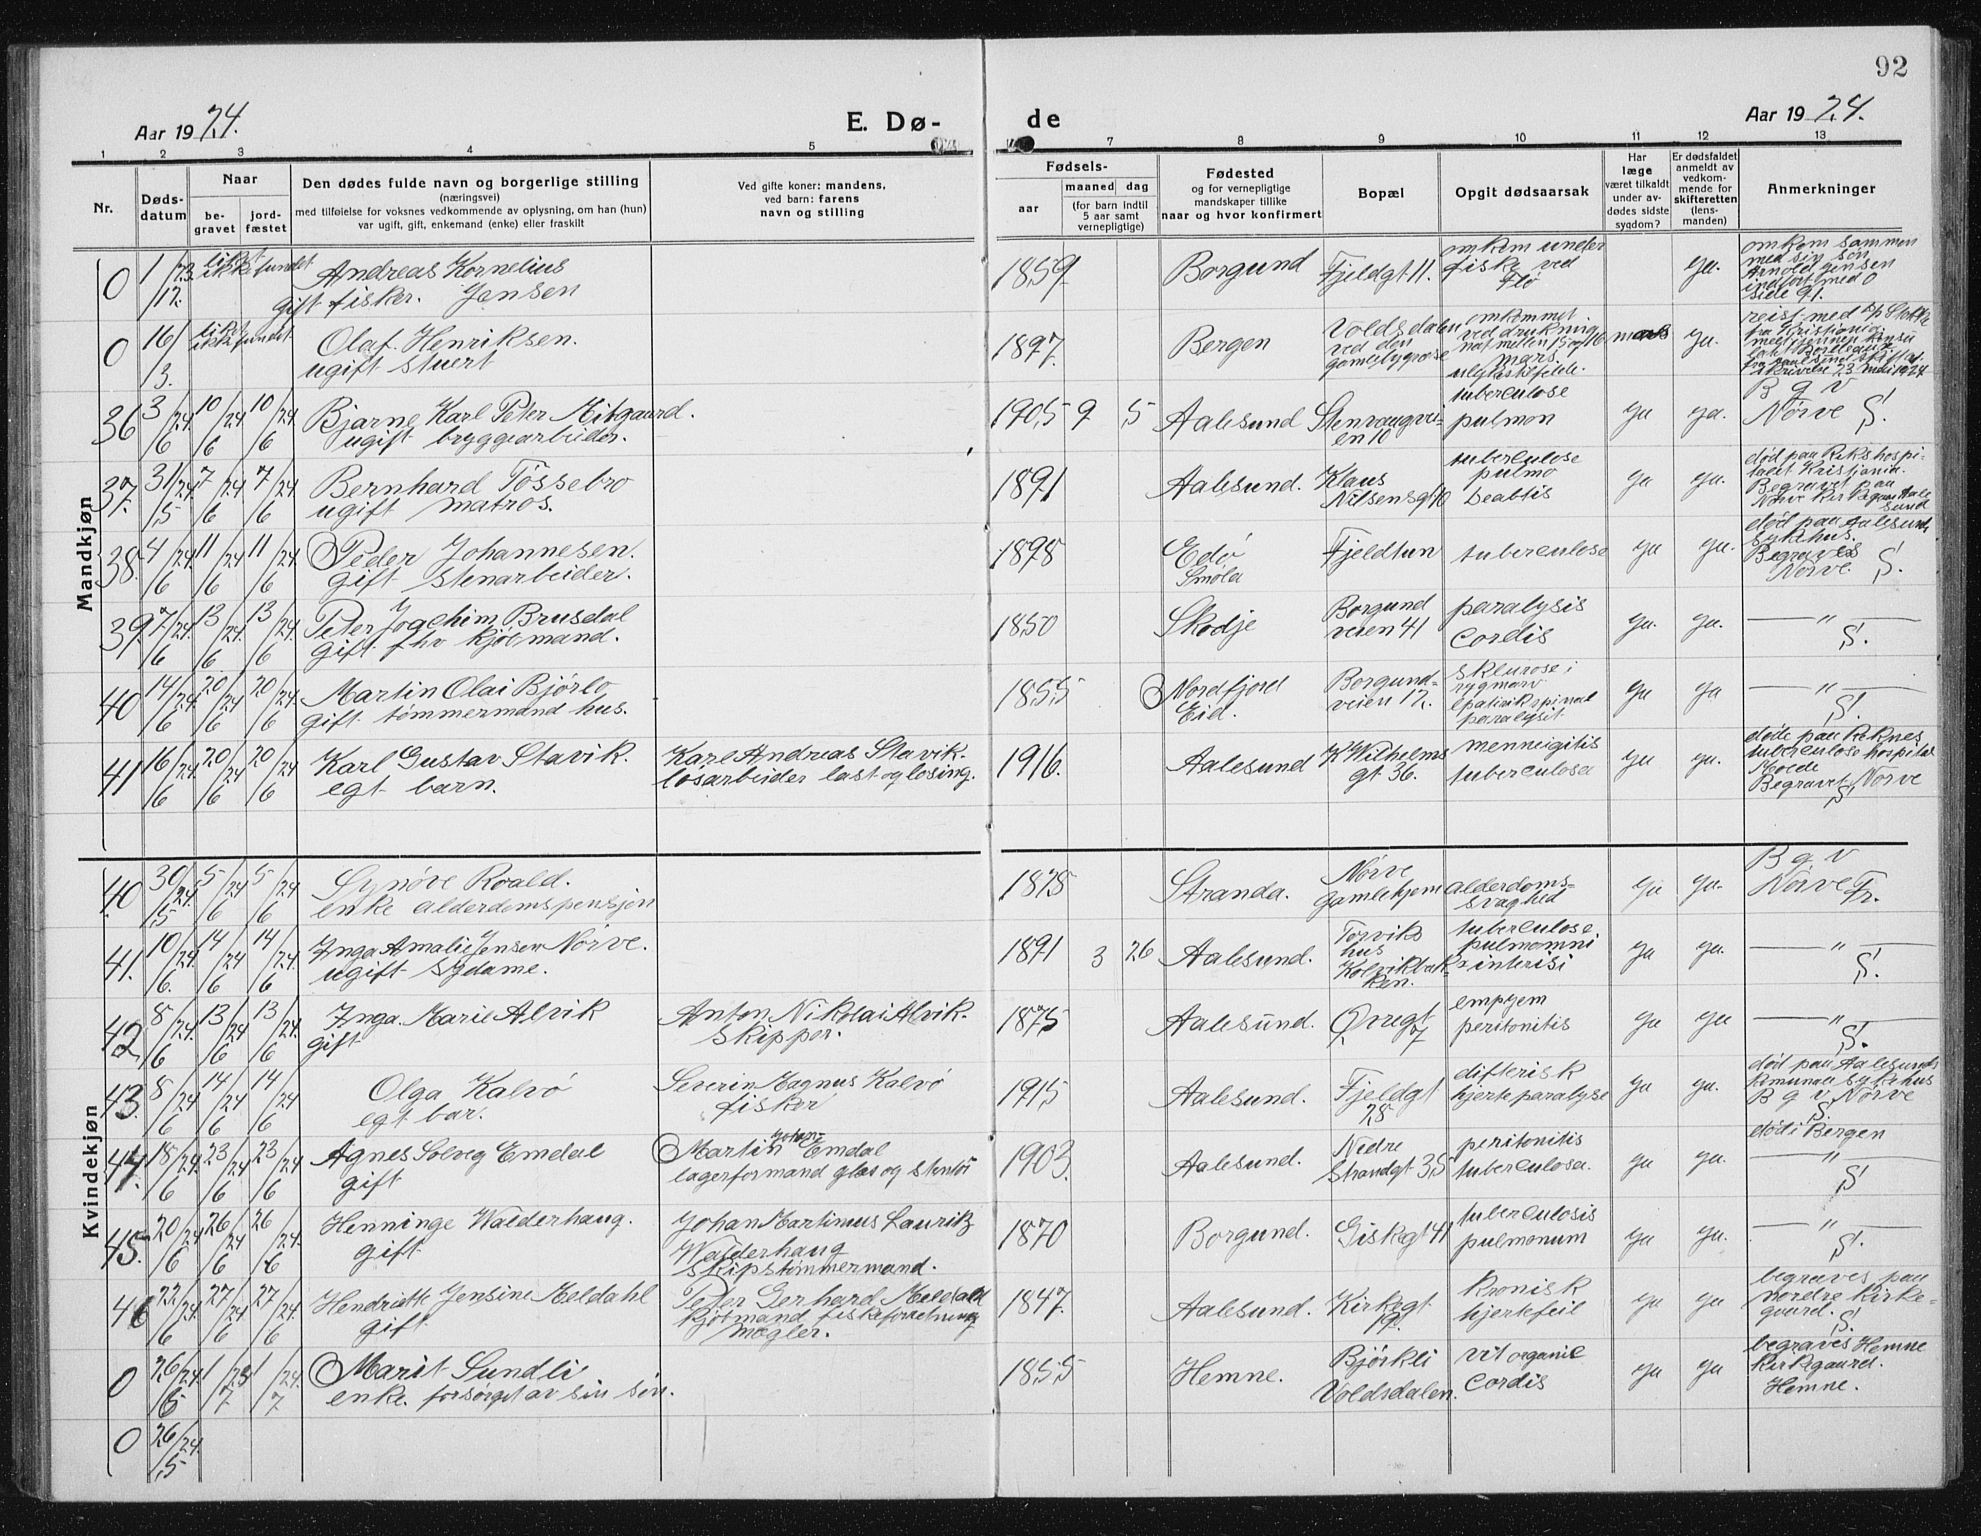 92
Aar 1924.
E. Dø-
de
Aar 1924.
1 2 3 4 5 7 8 9 10 11 12 13
Nr.
Døds-
datum
Naar
be-
gravet
jord-
fæstet
Den dødes fulde navn og borgerlige stilling
(næringsvei)
med tilføielse for voksnes vedkommende av oplysning, om han (hun)
var ugift, gift, enkemand (enke) eller fraskilt
Ved gifte koner: mandens,
ved barn: farens
navn og stilling
Fødsels-
aar
maaned dag
(for barn indtil
5 aar samt
vernepligtige)
Fødested
og for vernepligtige
mandskaper tillike
naar og hvor konfirmert
Bopæl
Opgit dødsaarsak
Har
læge
været tilkaldt
under av-
dødes sidste
sygdom?
Er dødsfaldet
anmeldt av
vedkom-
mende for
skifteretten
(lens-
manden)
Anmerkninger
Mandkjøn
0 1/12. 23 liket ikke fundet Andreas Kornelius
gift fisker. Jensen
1859 Borgund Fjeldgt 11. omkom under
fiske ved
Flø
ya.
omkom sammen
med sin søn
Arnold Jensen
indført med 0
side 91.
0 16/3. liket ikke fundet Olaf Henriksen.
ugift stuert
1897. Bergen Voldsdalen
ved den
omkommet
ved drukning
mars
ulykkestilfelde.
ya.
36 3/6 24 10/6 24 10/6 24. Bjarne Karl Peter Mitgaard.
ugift bryggearbeider.
1905 9 5 Aalesund Stenvaagvei-
en 10
tuberculose
pulmon
ya ya.
B g v
Nørve S.
37. 31/5 24. 7/6 24 7/6 24. Bernhard Tøssebro
ugift matros.
1891 Aalesund. Klaus
Nilsensgt 10
tuberculose
pulmo
Deabtis
ya ya.
død paa Rikshospi-
talet Kristiania.
Begravet paa
Nørve Kirkegaard Aale
sund
38. 4/6 24. 11/6 24 11/6 24. Peder Johannesen.
gift stenarbeider.
1898 Edø
Smøla
Fjeldtun tuberculose ya ya.
død paa Aalesunds
sykehus.
Begraves
Nørve. S.
39 7/6 24. 13/6 24. 13/6 24. Peter Joachim Brusdal
gift fhv kjøbmand.
1850 Skodje Borgund
veien 41
paralysis
cordis
ya. ya. — " —
S.
40 14/6 24. 20/6 24 20/6 24. Martin Olai Bjørlo
gift tømmermand hus.
1855 Nordfjord
Eid.
Borgund-
veien 17.
sklerose i
rygmarv
ya ya — " —
S.
41 16/6 24. 20/6 24 20/6 24 Karl Gustav Stavik.
egt barn.
Karl Andreas Stavik.
løsarbeider last og losing.
1916. Aalesund K Wilhelms
gt 36.
menneigitis
tuberculosa
ya ya.
døde paa Reknes
tuberculose hospital
Molde
Begravet Nørve
S.
Kvindekjøn
40. 30/5 24. 5/6 24 5/6 24 Synøve Roald.
enke alderdomspensjon
1875 Stranda. Nørve
gamlehjem
alderdoms-
svaghed
ya ya.
B g v
Nørve Fr.
41. 10/6. 24. 14/6 24 14/6 24. Inga Amalie Jensen Nørve.
ugift sydame.
1891 3 26 Aalesund. Torviks
hus
tuberculose
ya ya. — " —
S.
42 8/6 24. 13/6 24 13/6 24. Inga Marie Alvik
gift
Anton Nikolai Alvik.
skipper.
1875 Aalesund. Øvregt
7
empyem
peritonitis
ya ya — " —
S.
43. 8/6 24 14/6 24 14/6 24 Olga Kalvø
egt bar.
Severin Magnus Kalvø
fisker
1915 Aalesund. Fjeldgt
28
difterisk
hjerteparalyse
ya ya.
død paa Aalesunds
komunale sykehus
B g v Nørve
S.
44. 18/6 24. 23/6 24 23/6 24 Agnes Solveig Emdal
gift
Martin Johan Emdal
lagerformand glas og stentøi
1903. Aalesund. Nedre
Strandgt 35
peritonitis
tuberculosa.
ya ya.
død i Bergen
— " —
S
45. 20/6 24 26/6 24 26/6 24. Henninge Walderhaug.
gift
Johan Martinus Laurits
Walderhaug
skipstømmermand.
1870 Borgund. Giskegt 41 tuberculosis
pulmonum
ya ya. — " —
S.
46 22/6 24. 27/6 24 27/6 24. Hendriette Jensine Meldahl
gift
Peter Gerhard Meldahl
kjøbmand fiskeforretning
megler.
1847. Aalesund. Kirkegt
kronisk
hjertefeil
ya ya
begraves paa
nordre kirke-
gaard.
S.
0 26/6 24 1/7 24 1/7 24. Marit Sundli
enke. forsørget av sin søn.
1855 Hemne. Bjørkli
Voldsdalen.
vit organic
cordis
ya ya
begraves Hemne
Kirkegaard.
Hemne.
0 26/5 24.